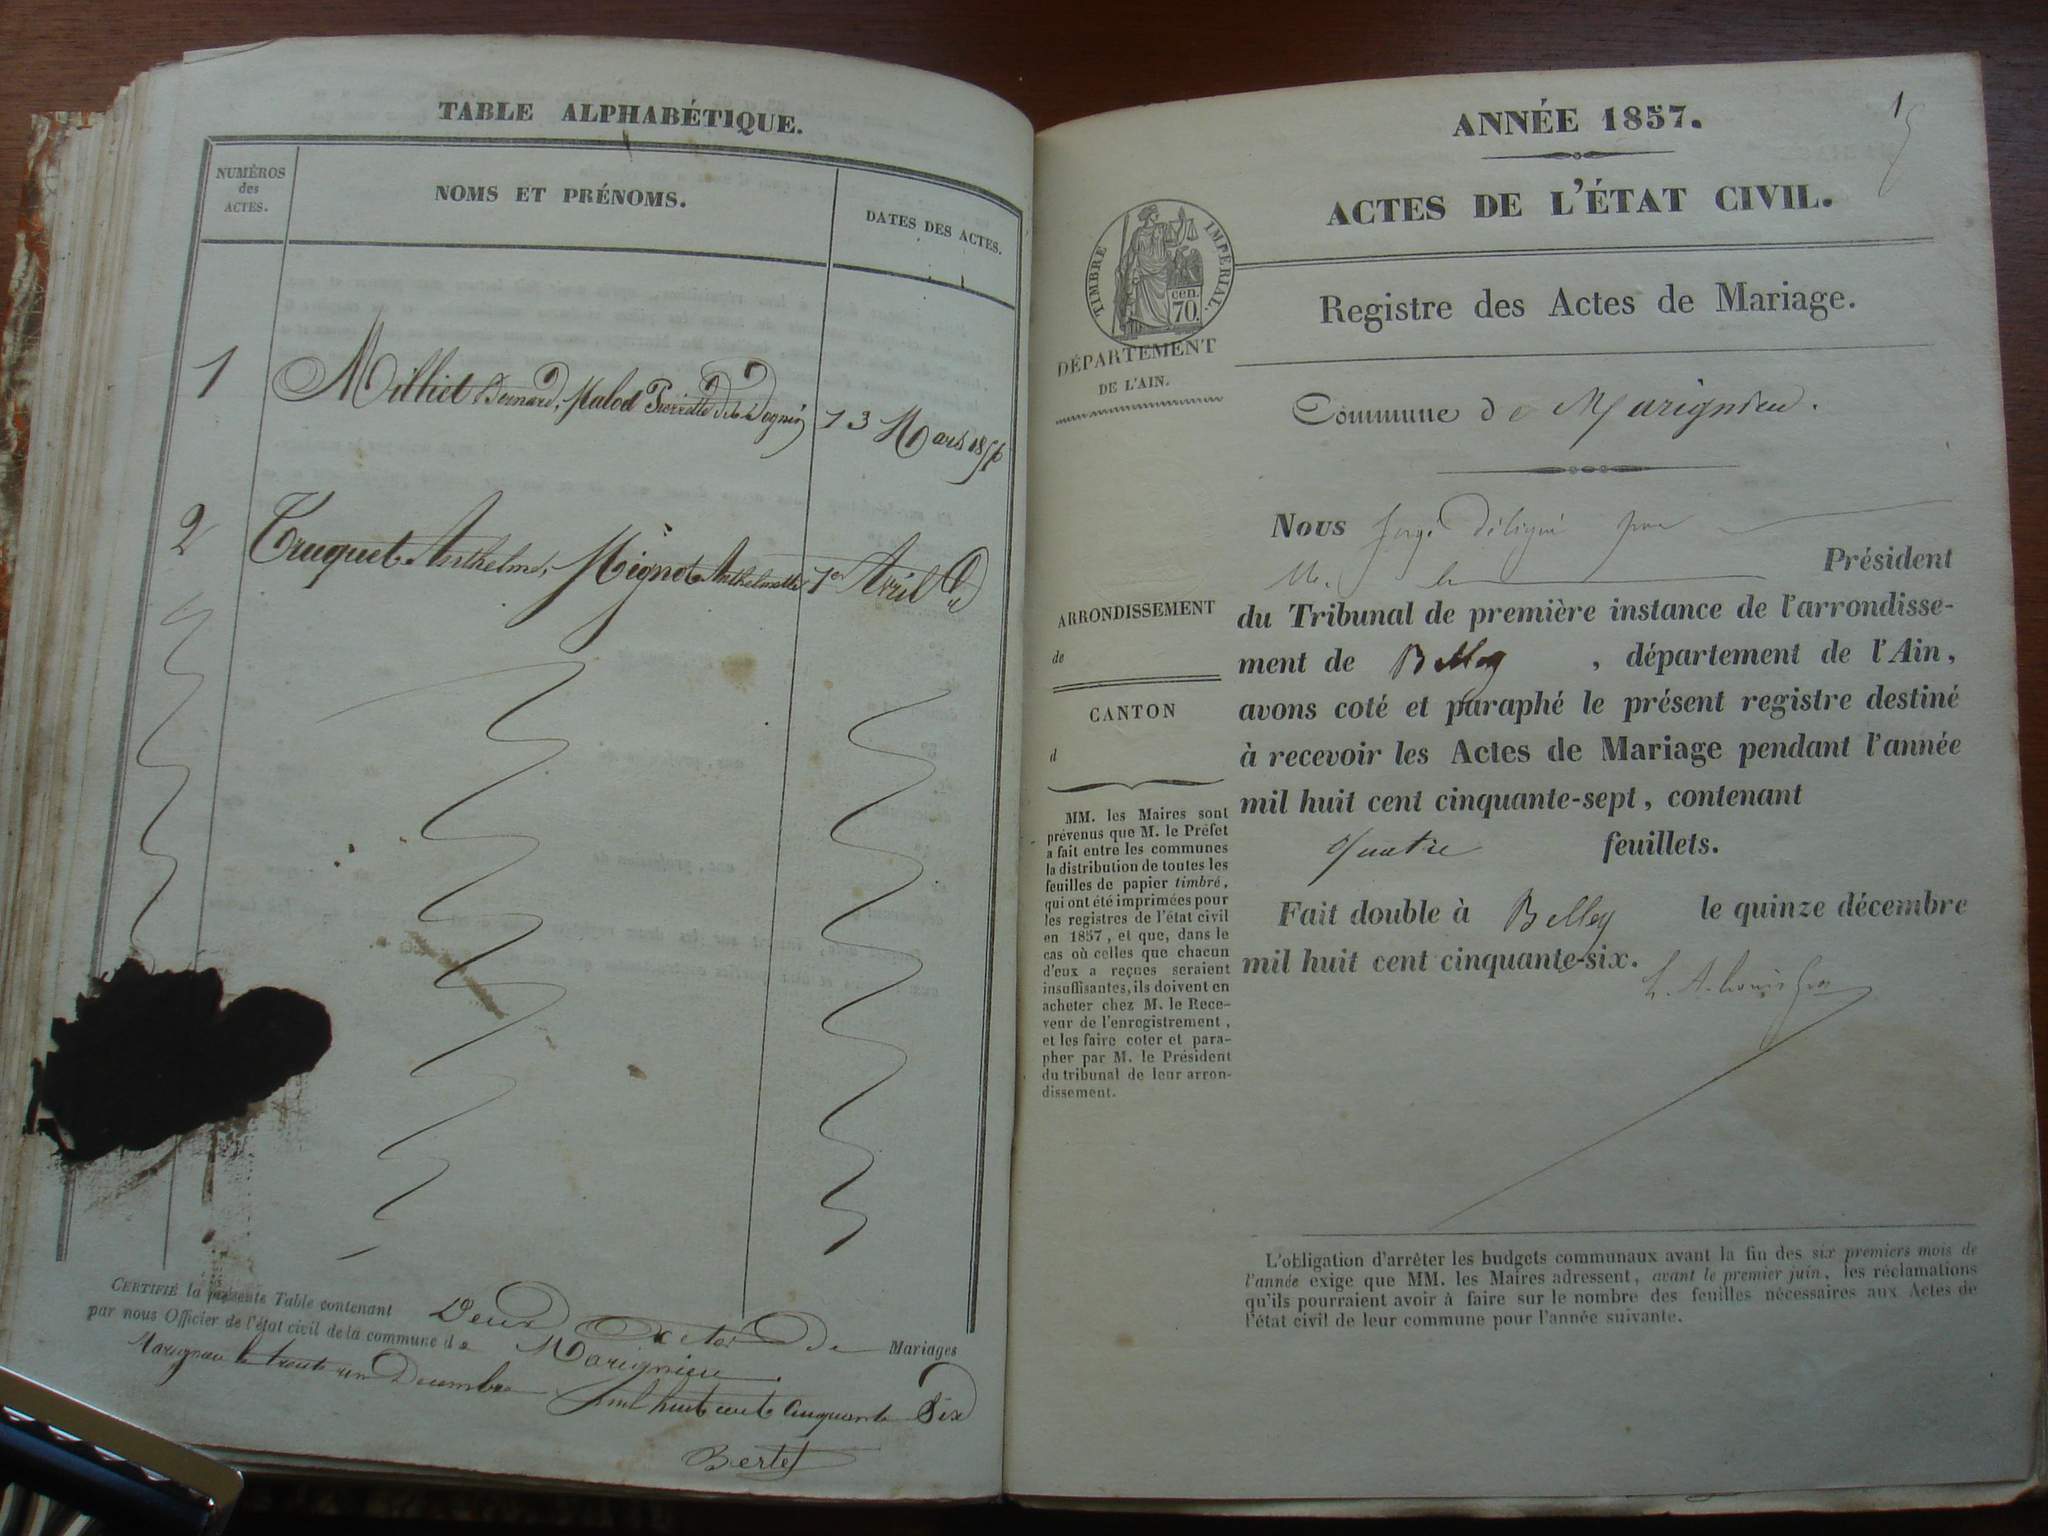 TABLE ALPHABÉTIQUE.
NUMÉROS
des
ACTES.
NOMS ET PRÉNOMS.
DATES DES ACTES.
1 Milliet Bernard, Malod Pierrette 13 Mars 1856
2 Truquet Anthelme, Mignot Anthelmette 1er Avril
CERTIFIÉ la présente Table contenant Deux Actes De Mariages
par nous Officier de l'état civil de la commune de Marignieu.
Marignieu le trente un Decembre mil huit cent Cinquante Six
Bertet
1
ANNÉE 1857.
ACTES DE L'ÉTAT CIVIL.
TIMBRE IMPERIAL.
cen.
70.
Registre des Actes de Mariage.
DÉPARTEMENT
DE L'AIN.
Commune de Marignieu.
ARRONDISSEMENT
de
CANTON
d
MM. les Maires sont
prévenus que M. le Préfet
a fait entre les communes
la distribution de toutes les
feuilles de papier timbré,
qui ont été imprimées pour
les registres de l'état civil
en 1857, et que, dans le
cas où celles que chacun
d'eux a reçues seraient
insuffisantes, ils doivent en
acheter chez M. le Rece-
veur de l'enregistrement,
et les faire coter et para-
pher par M. le Président
du tribunal de leur arron-
dissement.
Nous Juge délégué par
M. le Président
du Tribunal de première instance de l'arrondisse-
ment de Belley, département de l'Ain,
avons coté et paraphé le présent registre destiné
à recevoir les Actes de Mariage pendant l'année
mil huit cent cinquante-sept, contenant
quatre feuillets.
Fait double à Belley le quinze décembre
mil huit cent cinquante-six.
L'obligation d'arrêter les budgets communaux avant la fin des six premiers mois de
l'année exige que MM. les Maires adressent, avant le premier juin, les réclamations
qu'ils pourraient avoir à faire sur le nombre des feuilles nécessaires aux Actes de
l'état civil de leur commune pour l'année suivante.